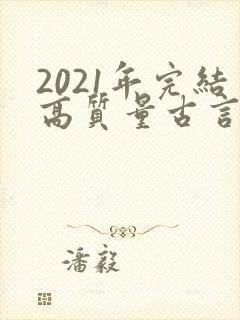 2021年完結
高質量古言
潘毅